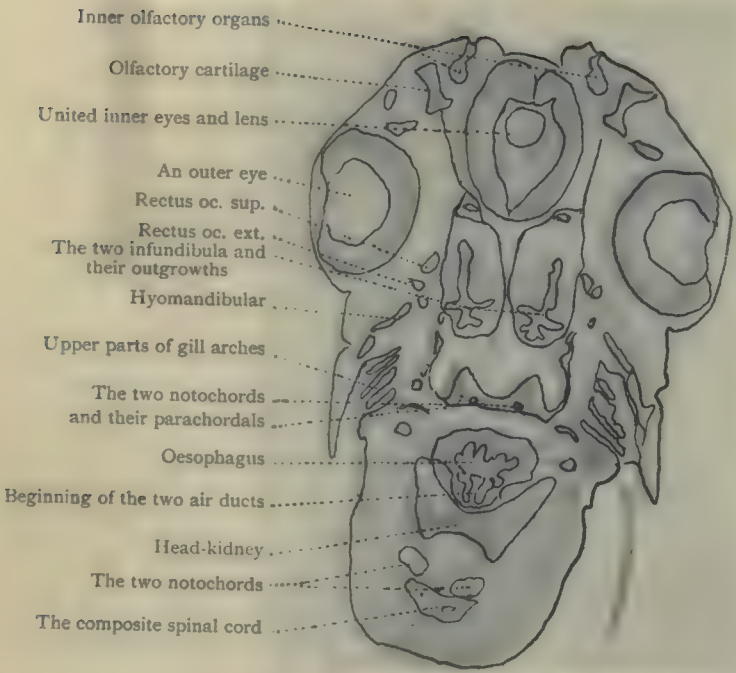 Inner olfactory organs
Olfactory cartilage
United inner eyes and lens
An outer eye
Rectus oc. sup.
Rectus oc. ext.
The two infundibula and
their outgrowths
Hyomandibular
Upper parts of gill arches
The two notochords
and their parachordals
Oesophagus
Beginning of the two air ducts
Head-kidney
The two notochords
The composite spinal cord